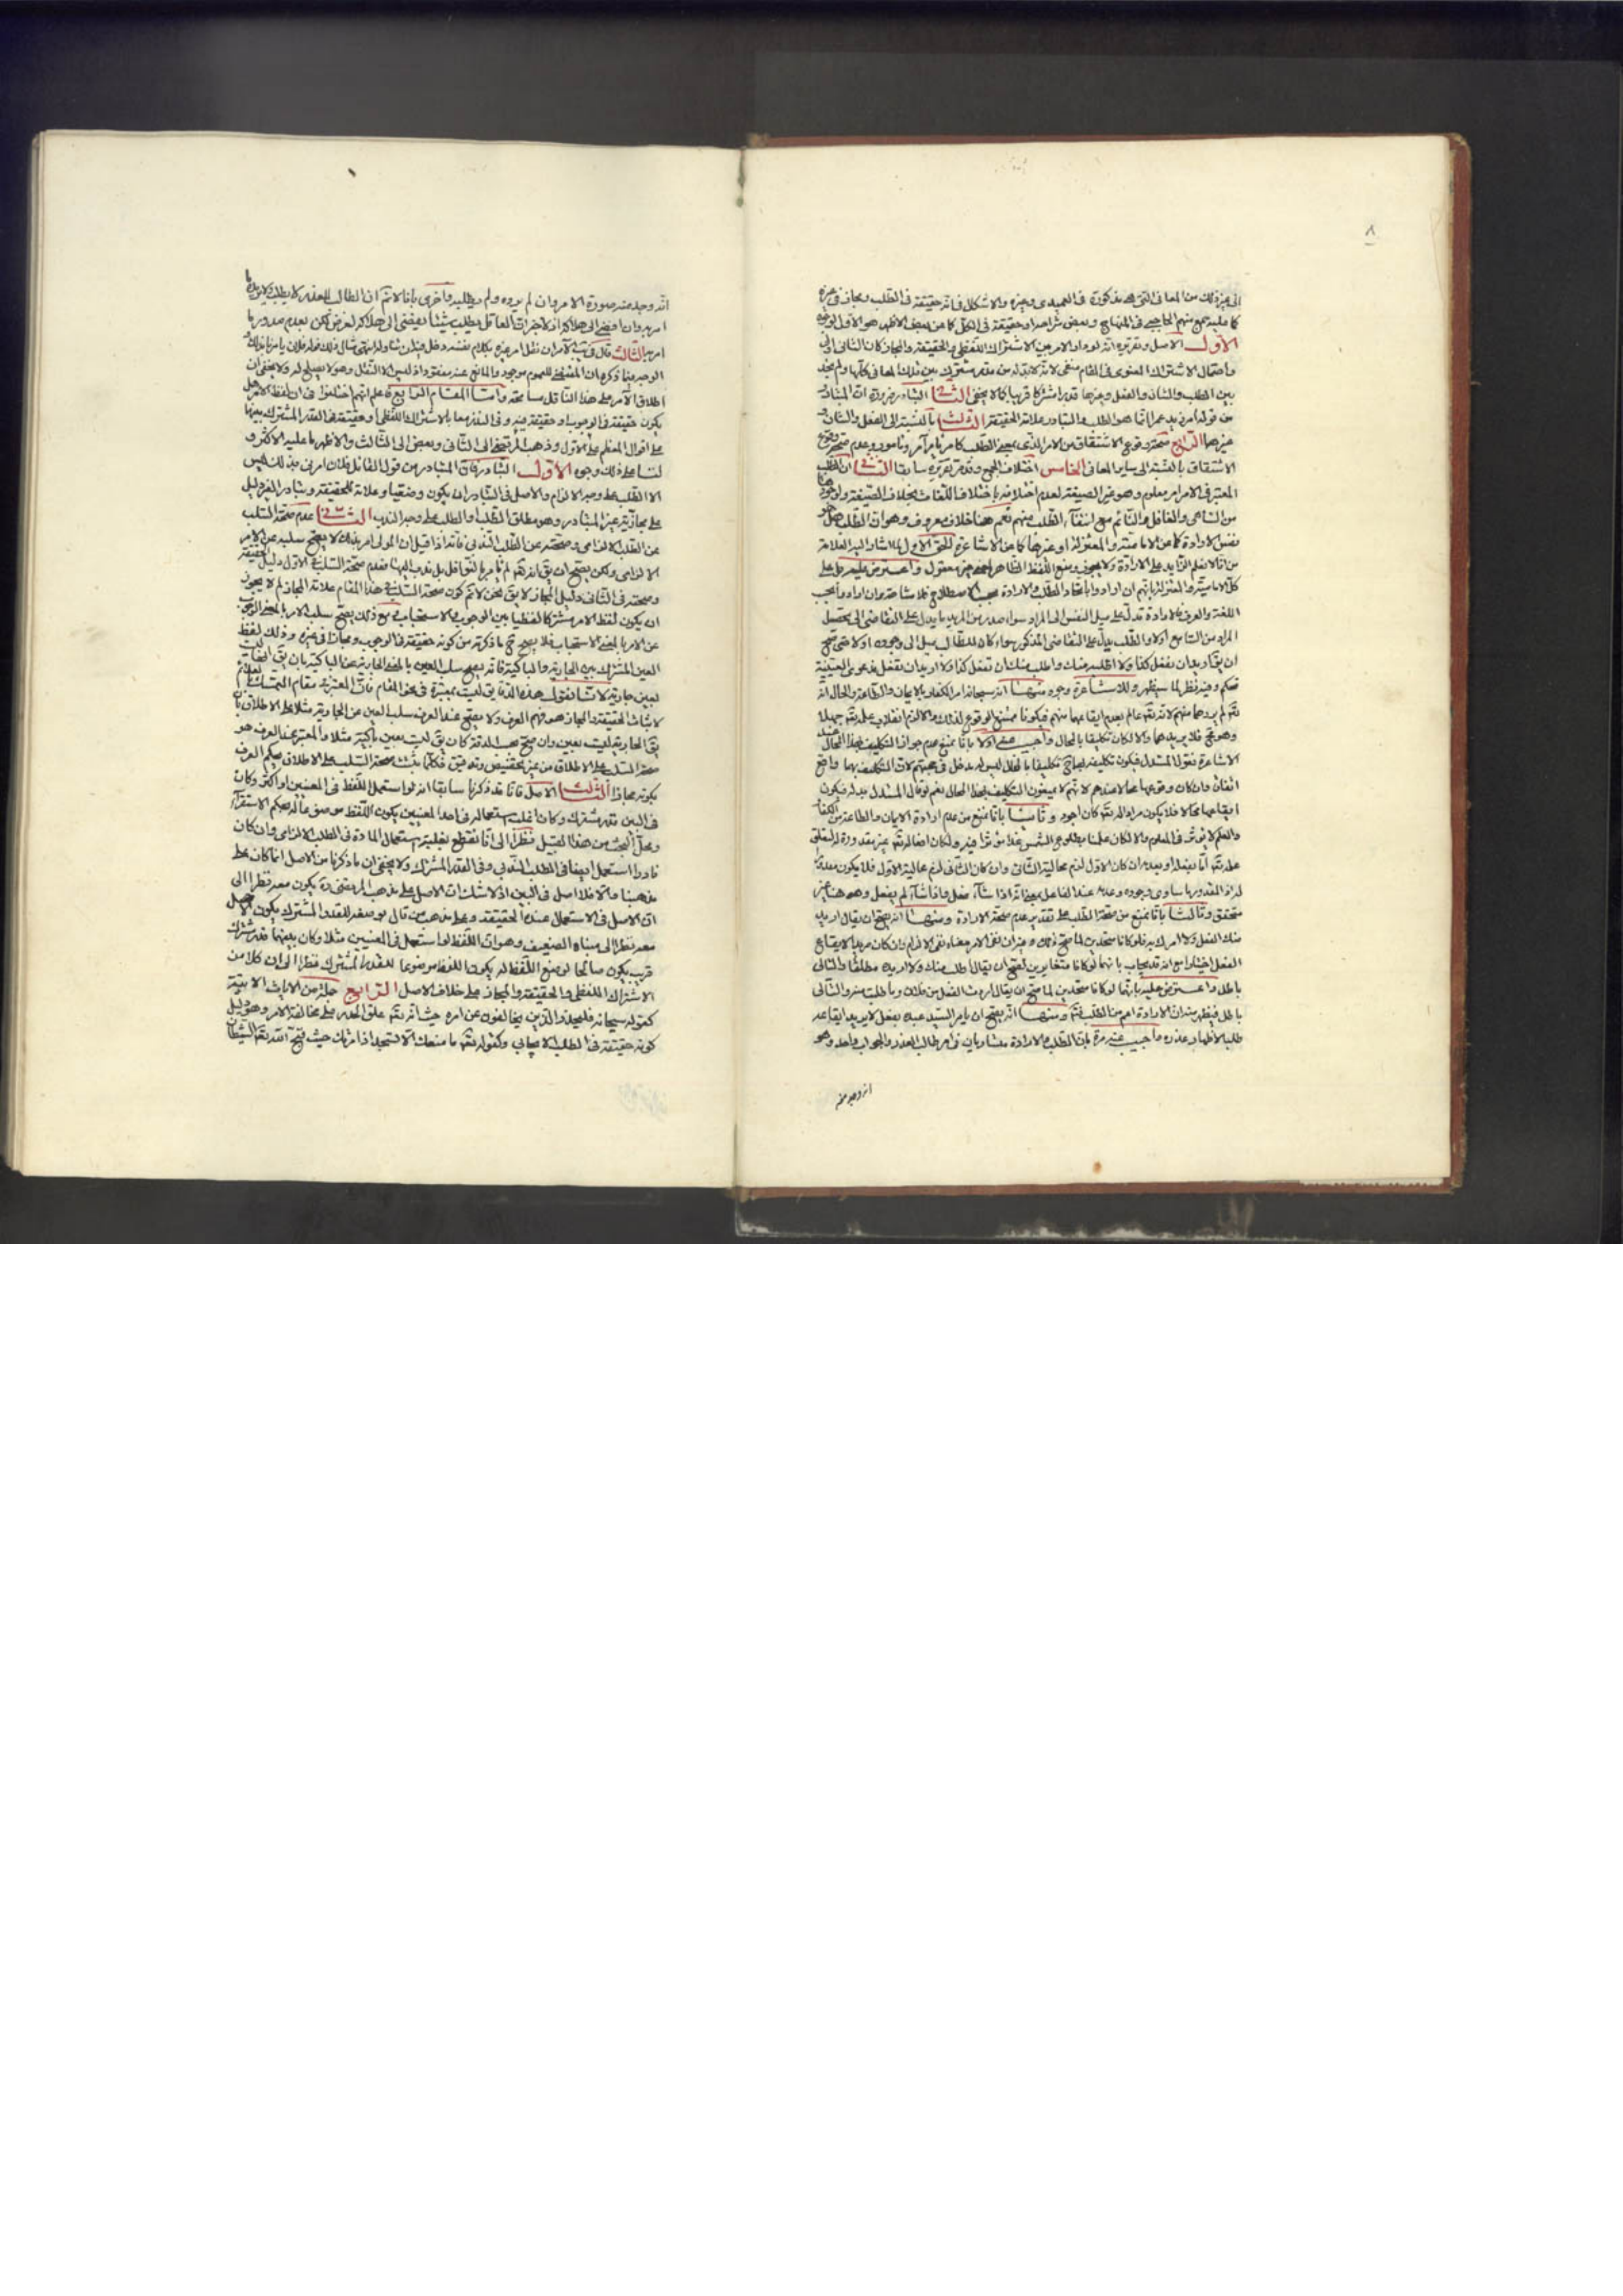 ٨
الى غير ذلك من المعانى التى هى مذكورة فى العميدى وغيره والاشكال فى انه حقيقة فى الطلب ومجاز فى غيره
كما عليه جمع منهم الحاجبى فى المنهاج وبعض او حقيقة فى الكل كما عن بعض الاظهر هو الاول لوجوه
الاول الاصل وتقريره انه لو دار الامر بين الاشتراك اللفظى والحقيقة والمجاز كان الثانى اولى
واحتمال الاشتراك المعنوى فى المقام منفى لانه لابد له من قدر مشترك بين تلك المعانى كلها ولم نجد
بين الطلب والشان والفعل وغيرها قدرا مشتركا قريبا كما لا يخفى الثانى التبادر ضرورة ان المتبادر
من قوله امر زيد عمرا انما هو الطلب والتبادر علامة الحقيقة الثالث بالنسبة الى الفعل والشان و
غيرهما الرابع صحة وقوع الاشتقاق من الامر الذى بمعنى الطلب كامر يامر آمر ومامور وعدم صحة وقوع
الاشتقاق بالنسبة الى ساير المعانى الخامس اختلاف الجمع وقد مر تقريره سابقا الثانى ان الطلب
المعتبر فى الامر امر معلوم وهو غير الصيغة لعدم اختلافه باختلاف اللغات بخلاف الصيغة ولوجودها
من الساهى والغافل والنائم مع انتفاء الطلب منهم نعم هنا خلاف معروف وهو ان الطلب هل هو
نفس الارادة كما عن الامامية والمعتزلة او غيرها كما عن الاشاعرة الحق الاول لما اشار اليه العلامة
من انا لا نعلم الزايد على الارادة ولا يجوز وضع اللفظ الظاهر لمعنى غير معقول واعترض عليه
كل الامامية والمعتزلة بانهم ان ارادوا باتحاد الطلب والارادة بحسب الاصطلاح فلا مشاحة وان ارادوا بحسب
اللغة والعرف فالارادة تدل على ميل النفس الى المراد سواء صدر من المريد ما يدل على التقاضى الى تحصل
المراد من السامع اولا والطلب يدل على التقاضى المذكور سواء كان للطالب ميل الى وجوده اولا حتى صح
ان يق اريد ان تفعل كذا ولا اطلبه منك واطلب منك ان تفعل كذا ولا اريد ان تفعل فدعوى العينية
تحكم وفيه نظر لما سيظهر وللاشاعرة وجوه منها انه سبحانه امر الكفار بالايمان والطاعة والحال انه
تعالى لم يردهما منهم لانه تعالى عالم بعدم ايقاعهما منهم فيكونا ممتنع الوقوع لذلك والا لزم انقلاب علمه تعالى جهلا
وهو مح فلا يريدهما والا لكان تكليفا بالمحال واجيب عنه اولا بانا نمنع عدم جواز التكليف بهذا المحال عند
الاشاعرة
اتفاقا وان كان وقوعهما محالا عندهم لانهم لا يمنعون التكليف بهذا المحال نعم لو قال المستدل
ايقاعهما محالا فلا يكون مرادا له تعالى كان اجود وثانيا بانا نمنع من عدم ارادة الايمان والطاعة من الكفار
والعلم لا يؤثر فى المعلوم والا لكان علمنا بطلوع الشمس غدا مؤثرا فيه ولكان افعاله تعالى غير مقدورة له لتعلق
علمه تعالى اما بفعله او بعدمه ان كان الاول لزم محالية الثانى وان كان الثانى لزم محالية الاول فلا يكون مقدورا
له اذ المقدور ما يساوى وجوده وعدمه عند الفاعل بمعنى انه اذا شاء فعل واذا شاء لم يفعل وهو هنا غير
متحقق وثالثا بانا نمنع من صحة الطلب على تقدير عدم صحة الارادة ومنها انه يصح ان يقال اريد
منك الفعل ولا امرك به فلو كانا متحدين لما صح ذلك وفيه ان نفى الامر معناه نفى الالزام وان كان مريدا لايقاع
الفعل اختيارا مع انه قد يجاب بانهما لو كانا متغايرين لصح ان يقال اطلب منك ولا اريده مطلقا والتالى
باطل واعترض عليه بانهما لو كانا متحدين لما صح ان يقال اردت الفعل من فلان وما طلبت منه والتالى
باطل فيظهر منه ان الارادة اعم من الطلب فتم ومنها انه يصح ان يامر السيد عبده بفعل لا يريد ايقاعه
طلبا لاظهار عذره واجيب عنه مرة بان الطلب والارادة متساويان فى امر طالب العذر والجواب واحد وهو
انه وجد منه
انه وجد منه صورة الامر وان لم يرده ولم يطلبه واخرى بانا لا نم ان الطالب للعذر لا يطلب ولا يريد ما
امر به وان افضى الى هلاكه اذ لاحجر ان العاقل يطلب شيئا يفضى الى هلاكه لغرض لكن بعدم صدور ما
امر به الثالث قال فى
الوجه فيما ذكره ان المقتضى للعموم موجود والمانع عنه مفقود اذ ليس الا النقل وهو لا يصلح له ولا يخفى ان
اطلاق الامر على هذا الناقل مسامحة واما المقام الرابع فاعلم انهم اختلفوا فى ان لفظ الامر هل
يكون حقيقة فى الوجوب او حقيقة فيه وفى الندب معا بالاشتراك اللفظى او حقيقة فى القدر المشترك بينهما
على اقوال المعظم على الاول وذهب المرتضى الى الثانى وبعض الى الثالث والاظهر ما عليه الاكثر و
لنا على ذلك وجوه الاول التبادر فان المتبادر من قول القائل فلان امرنى بذلك ليس
الا الطلب على وجه الالزام والاصل فى التبادر ان يكون وضعيا وعلامة للحقيقة وتبادر الغير دليل
على مجازية غير المتبادر وهو مطلق الطلب او الطلب على وجه الندب الثانى عدم صحة السلب
عن الطلب الالزامى وصحته عن الطلب الندبى فانه اذا قيل ان المولى امر بذلك لا يصح سلبه عن الامر
الالزامى ولكن يصح ان يق انه تعالى لم يامر بالنوافل بل ندب اليها فعدم صحة السلب فى الاول دليل الحقيقة
وصحته فى الثانى دليل المجاز لا يق نحن لا نم كون صحة السلب فى هذا المقام علامة المجاز لم لا يجوز
ان يكون لفظ الامر مشتركا لفظيا بين الوجوب والاستحباب ومع ذلك يصح سلب الامر بالمعنى الوجوب
عن الامر بالمعنى الاستحباب فلا يصح ح ما ذكرته من كونه حقيقة فى الوجوب ومجازا فى غيره وذلك لفظ
العين المشترك بين الجارية والباكية فانه يصح سلب العين بالمعنى الجارية عن الباكية بان يق الباكية ليست
بعين جارية لانا نقول هذه الدقايق ليست بمعتبرة فى نحو المقام فان المعتبر فى مقام التمسك بالعلائم
لاثبات الحقيقة والمجاز هو فهم العرف ولا يصح عند العرف سلب العين عن الجارية مثلا على الاطلاق بان
يق الجارية ليست بعين وان صح بحسب الدقة كان يق ليست بعين باكية مثلا والمعتبر عند العرف هو
صحة السلب على الاطلاق من غير تخصيص وتدقيق فكلما يثبت صحة السلب على الاطلاق يحكم العرف
بكونه مجازا الثالث الاصل فانا قد ذكرنا سابقا انه لو استعمل اللفظ فى المعنيين او اكثر وكان
فى البين قدر مشترك وكان اغلب استعماله فى احد المعنيين يكون اللفظ موضوعا له بحكم الاستقراء
ومحل البحث من هذا القبيل نظرا الى انا نقطع بغلبة استعمال المادة فى الطلب الالزامى وان كان
نادرا استعمل ايضا فى الطلب الندبى وفى القدر المشترك ولا يخفى ان ما ذكرنا من الاصل انما كان على
مذهبنا والا فلا اصل فى البين اذ لا شك ان الاصل على مذهب المرتضى ره يكون معه نظرا الى
ان الاصل فى الاستعمال عنده الحقيقة وعلى مذهب من قال بوضعه للقدر المشترك يكون الاصل
معه نظرا الى مبناه الضعيف وهو ان اللفظ لو استعمل فى المعنيين مثلا وكان بينهما قدر مشترك
قريب يكون صالحا لوضع اللفظ له يكون اللفظ موضوعا للقدر المشترك نظرا الى ان كلا من
الاشتراك اللفظى والحقيقة والمجاز على خلاف الاصل الرابع جملة من الايات الاتية
كقوله سبحانه فليحذر الذين يخالفون عن امره حيث انه تعالى علق الحذر على مخالفة الامر وهو دليل
كونه حقيقة فى الطلب الايجابى وكقوله تعالى ما منعك الا تسجد اذ امرتك حيث وبخ الله تعالى الشيطان